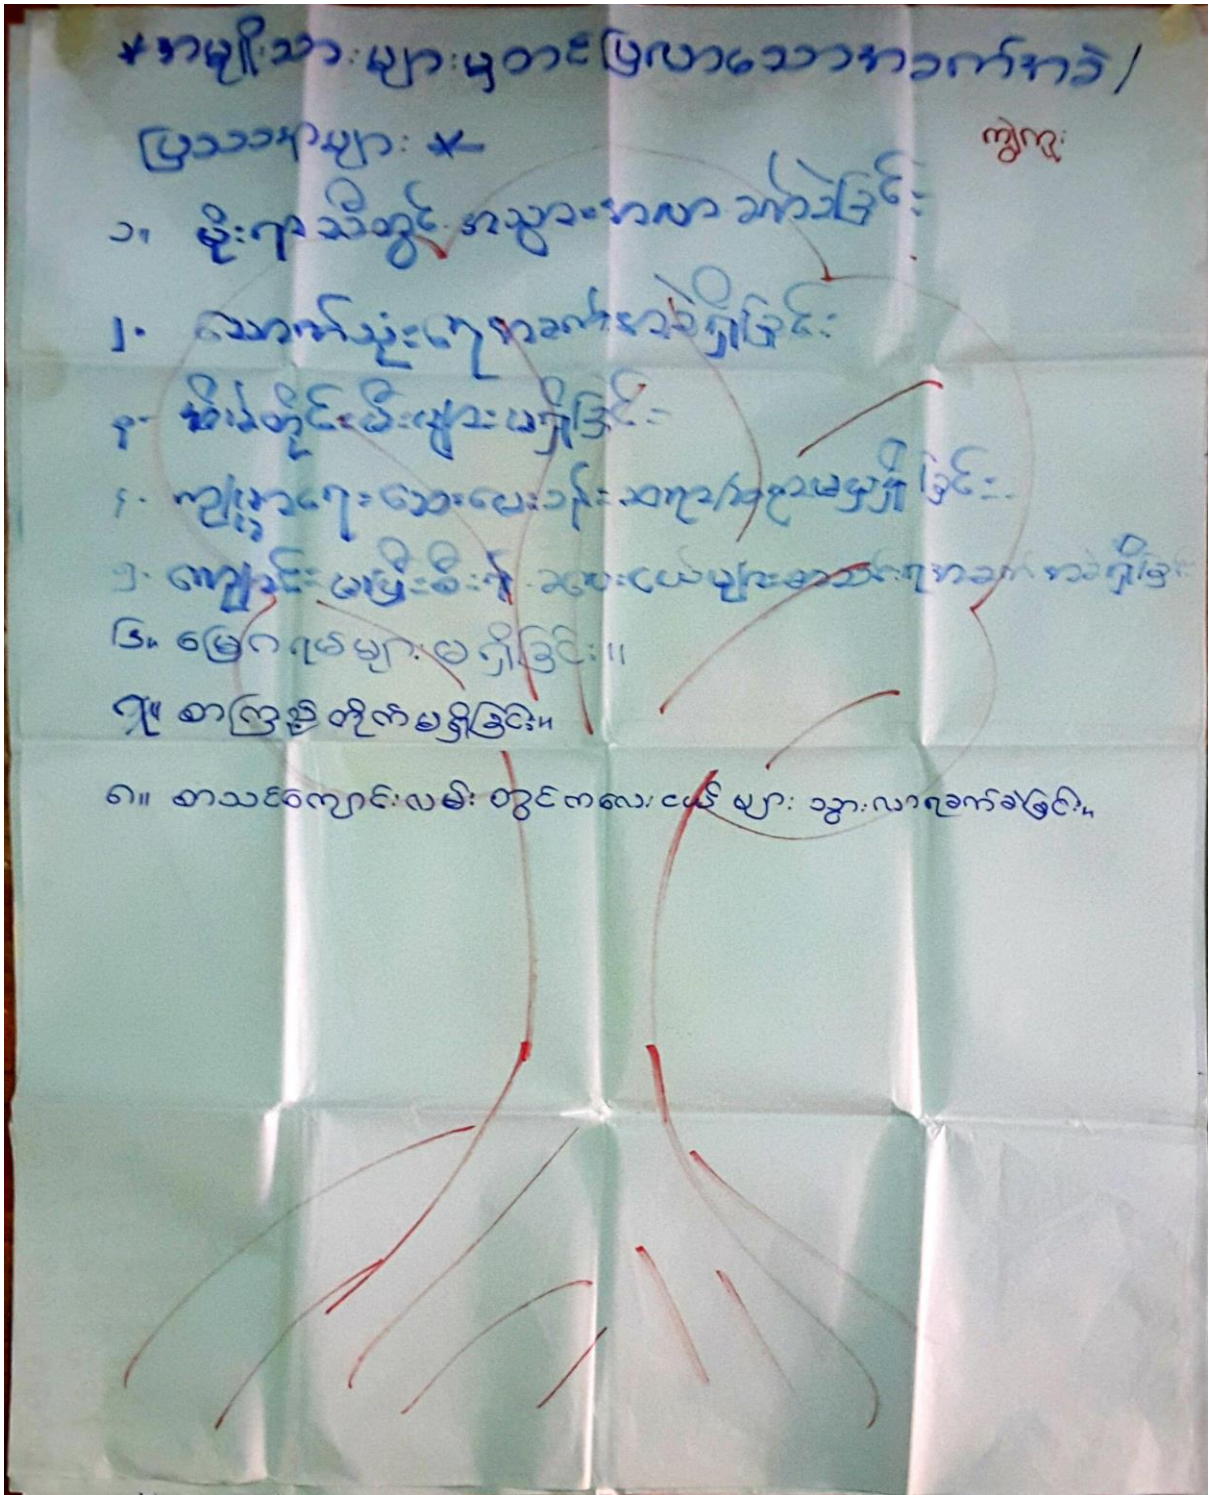 * အမျိုးသားများမှတင်ပြလာသောအခက်အခဲ /
ပြဿနာများ *
ကျွဲကူး
၁။ မိုးရာသီတွင် အသွားအလာ ခက်ခဲခြင်း
၂. သောက်သုံးရေအခက်အခဲရှိခြင်း
၃. အိမ်တိုင်းမီးများမရှိခြင်း
၄. ကျန်းမာရေးဆေးပေးခန်း ဆရာ/ဆရာမမရှိခြင်း
၅. ကျောင်း မပြီးစီး၍ ကလေးငယ်များစာသင်ရအခက်အခဲရှိခြင်း
၆။ မြေဂရမ်များ မရှိခြင်း။
၇။ စာကြည့်တိုက်မရှိခြင်း။
၈။ စာသင်ကျောင်းလမ်း တွင်ကလေးငယ် များ သွားလာရခက်ခဲခြင်း။